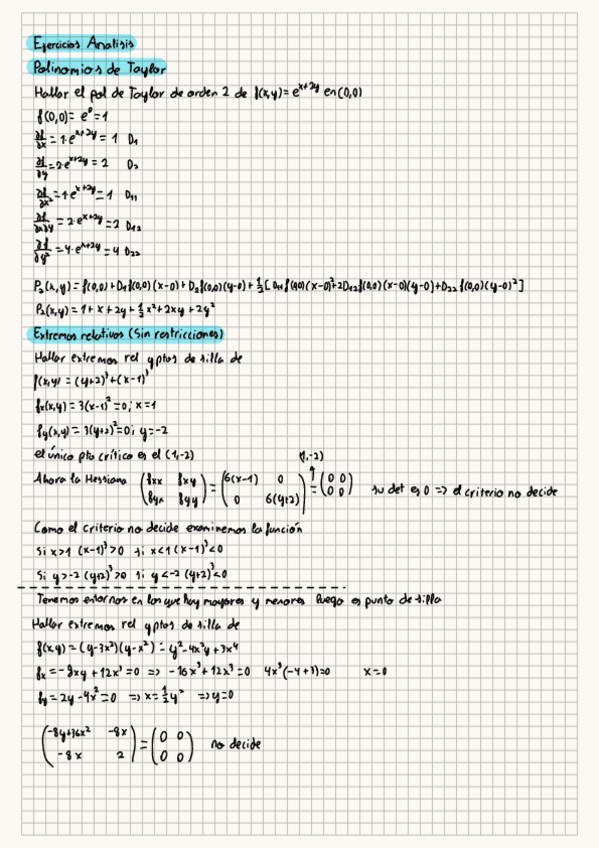 Ejercicios Analisis
Polinomios de Taylor
Hallar el pol de Taylor de orden 2 de f(x,y)= e^{x+2y} en (0,0)
f(0,0)= e^0=1
∂f/∂x = 1·e^{x+2y} = 1 D₁
∂f/∂y = 2·e^{x+2y} = 2 D₂
∂f/∂x² = 1·e^{x+2y} = 1 D₁₁
∂f/∂x∂y = 2·e^{x+2y} = 2 D₁₂
∂f/∂y² = 4·e^{x+2y} = 4 D₂₂
P₂(x,y) = f(0,0) + D₁f(0,0)(x-0) + D₂f(0,0)(y-0) + 1/2 [D₁₁f(0,0)(x-0)²+2D₁₂f(0,0)(x-0)(y-0)+D₂₂f(0,0)(y-0)²]
P₂(x,y) = 1 + x + 2y + 1/2 x² + 2xy + 2y²
Extremos relativos (Sin restricciones)
Hallar extremos rel y ptos de silla de
f(x,y) = (y+2)³+(x-1)³
fx(x,y) = 3(x-1)²=0; x=1
fy(x,y) = 3(y+2)²=0; y=-2
el único pto crítico es el (1,-2)
(1,-2)
Ahora la Hessiana (fxx fxy fyx fyy) = (6(x-1) 0 0 6(y+2)) = (0 0 0 0) su det es 0 => el criterio no decide
Como el criterio no decide examinemos la función
Si x>1 (x-1)³>0 si x<1 (x-1)³<0
Si y>-2 (y+2)³>0 si y<-2 (y+2)³<0
Tenemos entornos en los que hay mayores y menores luego es punto de silla
Hallar extremos rel y ptos de silla de
f(x,y) = (y-3x²)(y-x²) = y²-4x²y+3x⁴
fx = -8xy + 12x³ = 0 => -16x³+12x³=0 4x³(-4+3)=0 x=0
fy = 2y - 4x² = 0 => x = 1/2 y² => y=0
(-8y+36x² -8x -8x 2) = (0 0 0 0) no decide